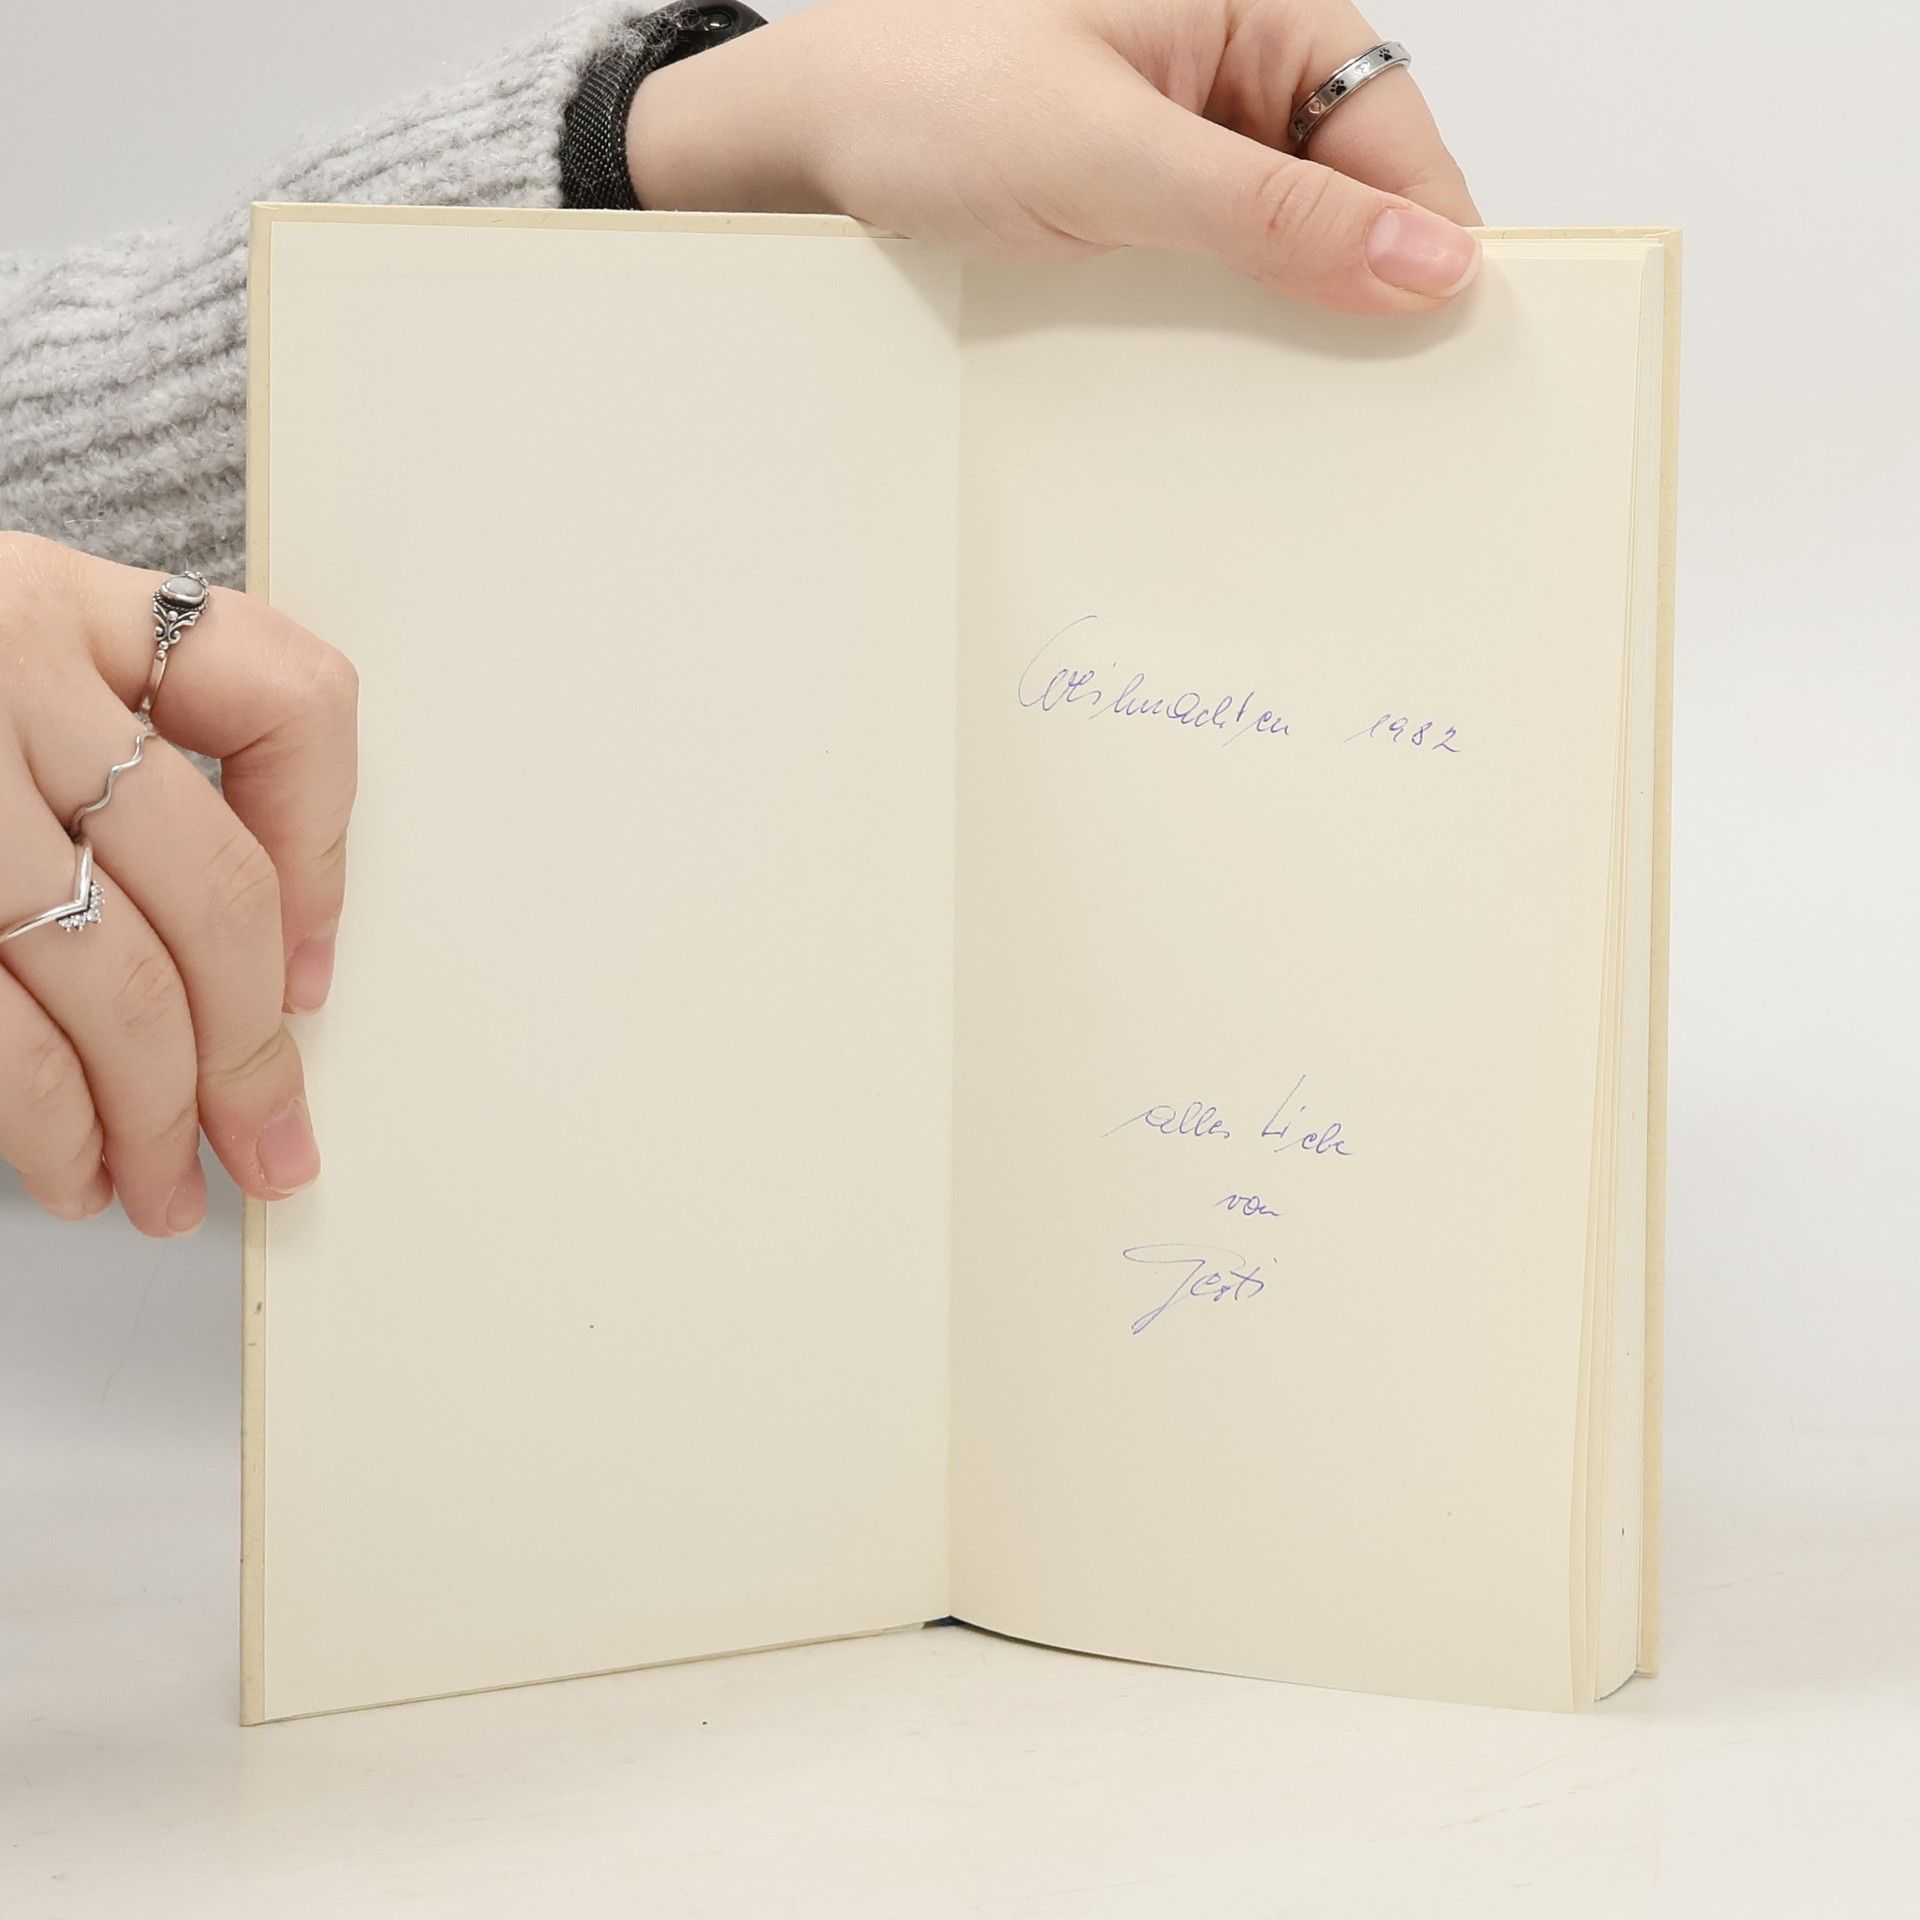 Weihnachten 1982
alles Liebe
von